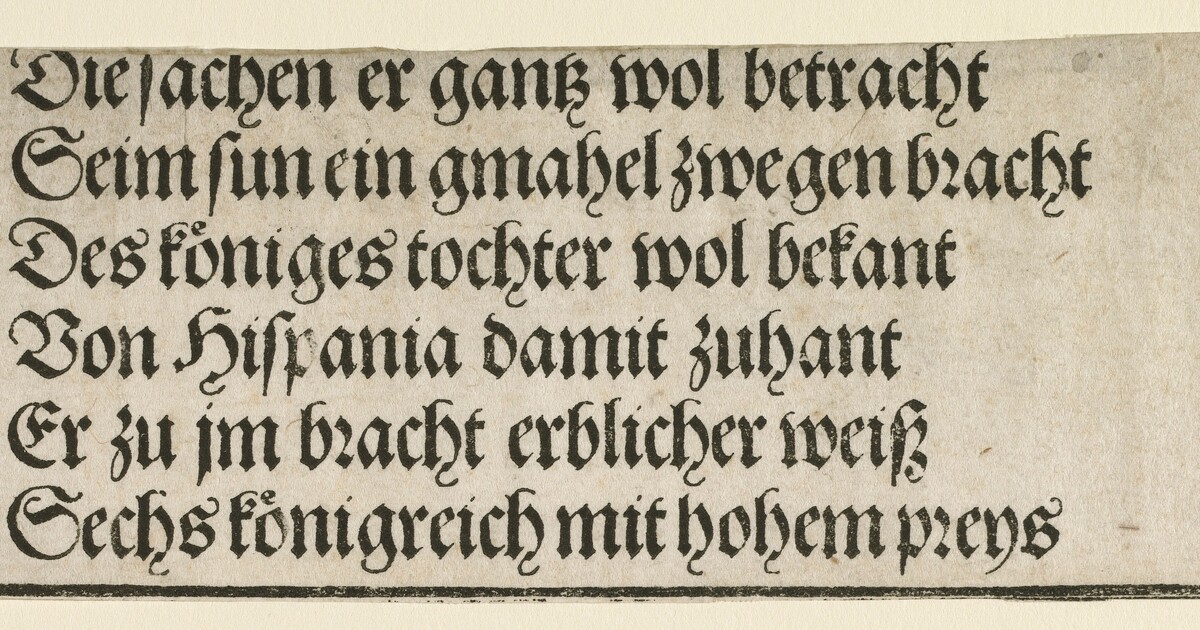 Die sachen er gantz wol betracht
Seim sun ein gmahel zwegen bracht
Des koͤniges tochter wol bekant
Von Hispania damit zuhant
Er zu jm bracht erblicher weiß
Sechs koͤnigreich mit hohem preys